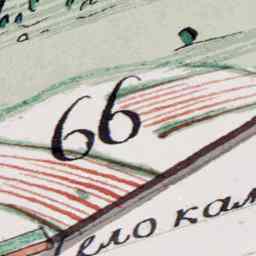 66
ело кам